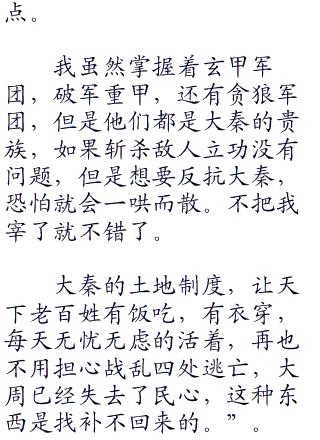 点。
我虽然掌握着玄甲军
团，破军重甲，还有贪狼军
团，但是他们都是大秦的贵
族，如果斩杀敌人立功没有
问题，但是想要反抗大秦，
恐怕就会一哄而散。不把我
宰了就不错了。
大秦的土地制度，让天
下老百姓有饭吃，有衣穿，
每天无忧无虑的活着，再也
不用担心战乱四处逃亡，大
周已经失去了民心，这种东
西是找补不回来的。”。